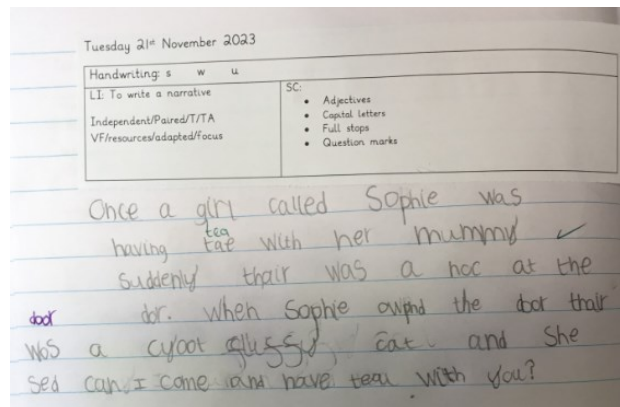 Tuesday 21st November 2023
Handwriting: s w u
LI: To write a narrative
Independent/Paired/T/TA
VF/resources/adapted/focus
SC:
• Adjectives
• Capital letters
• Full stops
• Question marks
Once a girl called Sophie was
tea
having tae with her mummy ✓
Suddenly thair was a noc at the
door dor. When Sophie owpnd the door thair
wos a cyoot fluffy cat. and She
sed can I come and have teau with you?